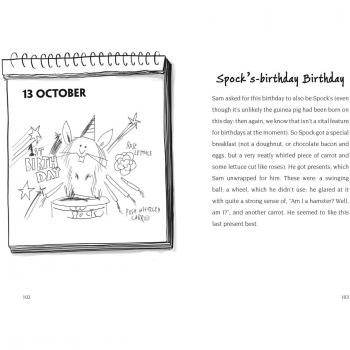 13 OCTOBER
1ST
BIRTH
DAY
ROSE
LETTUCE
POSH WHIRLEY
CARROT
102
Spock's-birthday Birthday
Sam asked for this birthday to also be Spock's (even
though it's unlikely the guinea pig had been born on
this day: then again, we know that isn't a vital feature
for birthdays at the moment). So Spock got a special
breakfast (not a doughnut, or chocolate bacon and
eggs, but a very neatly whirled piece of carrot and
some lettuce cut like roses). He got presents, which
Sam unwrapped for him. These were: a swinging
ball; a wheel, which he didn't use: he glared at it
with quite a strong sense of, "Am I a hamster? Well,
am I?", and another carrot. He seemed to like this
last present best.
103